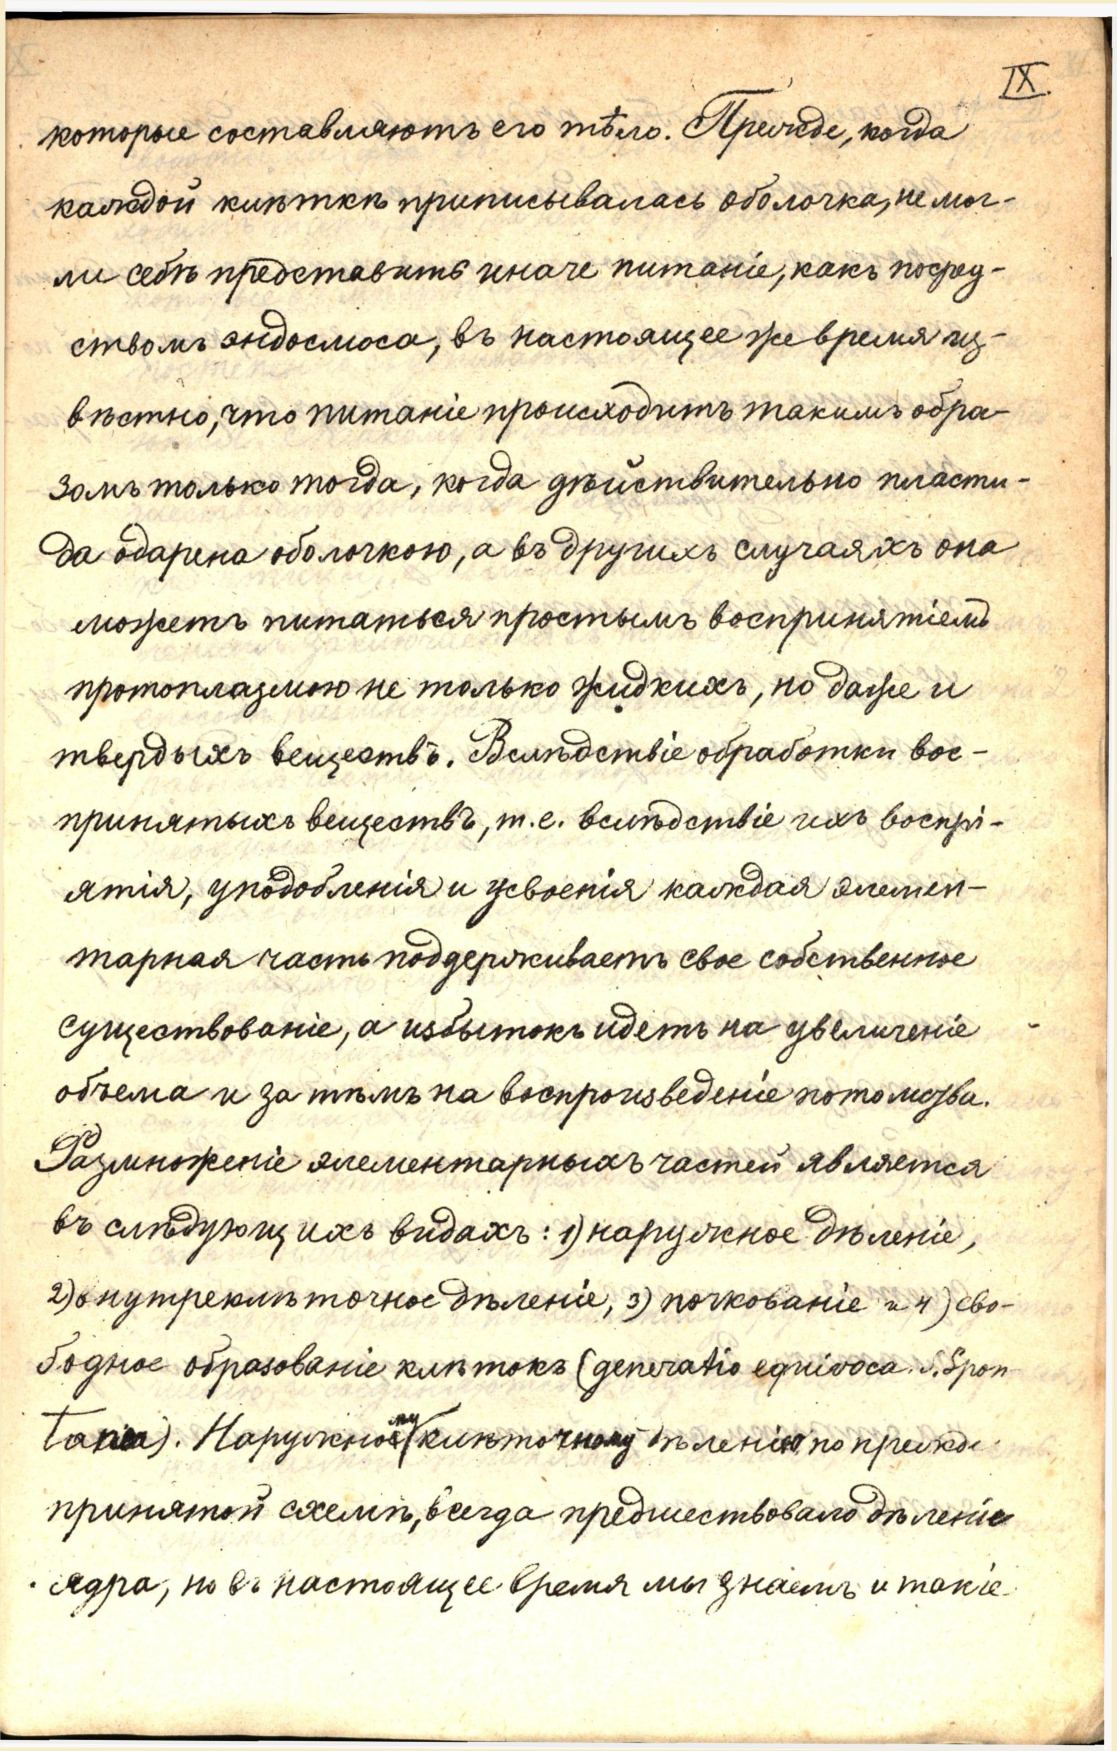 IX.
которые составляютъ его тѣло. Прежде, когда
каждой клѣткѣ приписывалась оболочка, не мог-
ли себѣ представить иначе питаніе, какъ посред-
ствомъ эндосмоса, въ настоящее же время из-
вѣстно, что питаніе происходитъ такимъ обра-
зомъ только тогда, когда дѣйствительно пласти-
да одарена оболочкою, а въ другихъ случаяхъ она
можетъ питаться простымъ воспринятіемъ
протоплазмою не только жидкихъ, но даже и
твердыхъ веществъ. Вслѣдствіе обработки вос-
принятыхъ веществъ, т.е. вслѣдствіе ихъ воспрі-
ятія, уподобленія и усвоенія каждая элемен-
тарная часть поддерживаетъ свое собственное
существованіе, а избытокъ идетъ на увеличеніе
объема и за тѣмъ на воспроизведеніе потомства.
Размноженіе элементарныхъ частей является
въ слѣдующихъ видахъ: 1) наружное дѣленіе,
2) внутреклѣточное дѣленіе, 3) почкованіе и 4) сво-
бодное образованіе клѣтокъ (generatio equivoca s. spon
tanea). Наружному клѣточному дѣленію по прежде
принятой схемѣ, всегда предшествовало дѣленіе
ядра, но въ настоящее время мы знаемъ и такіе